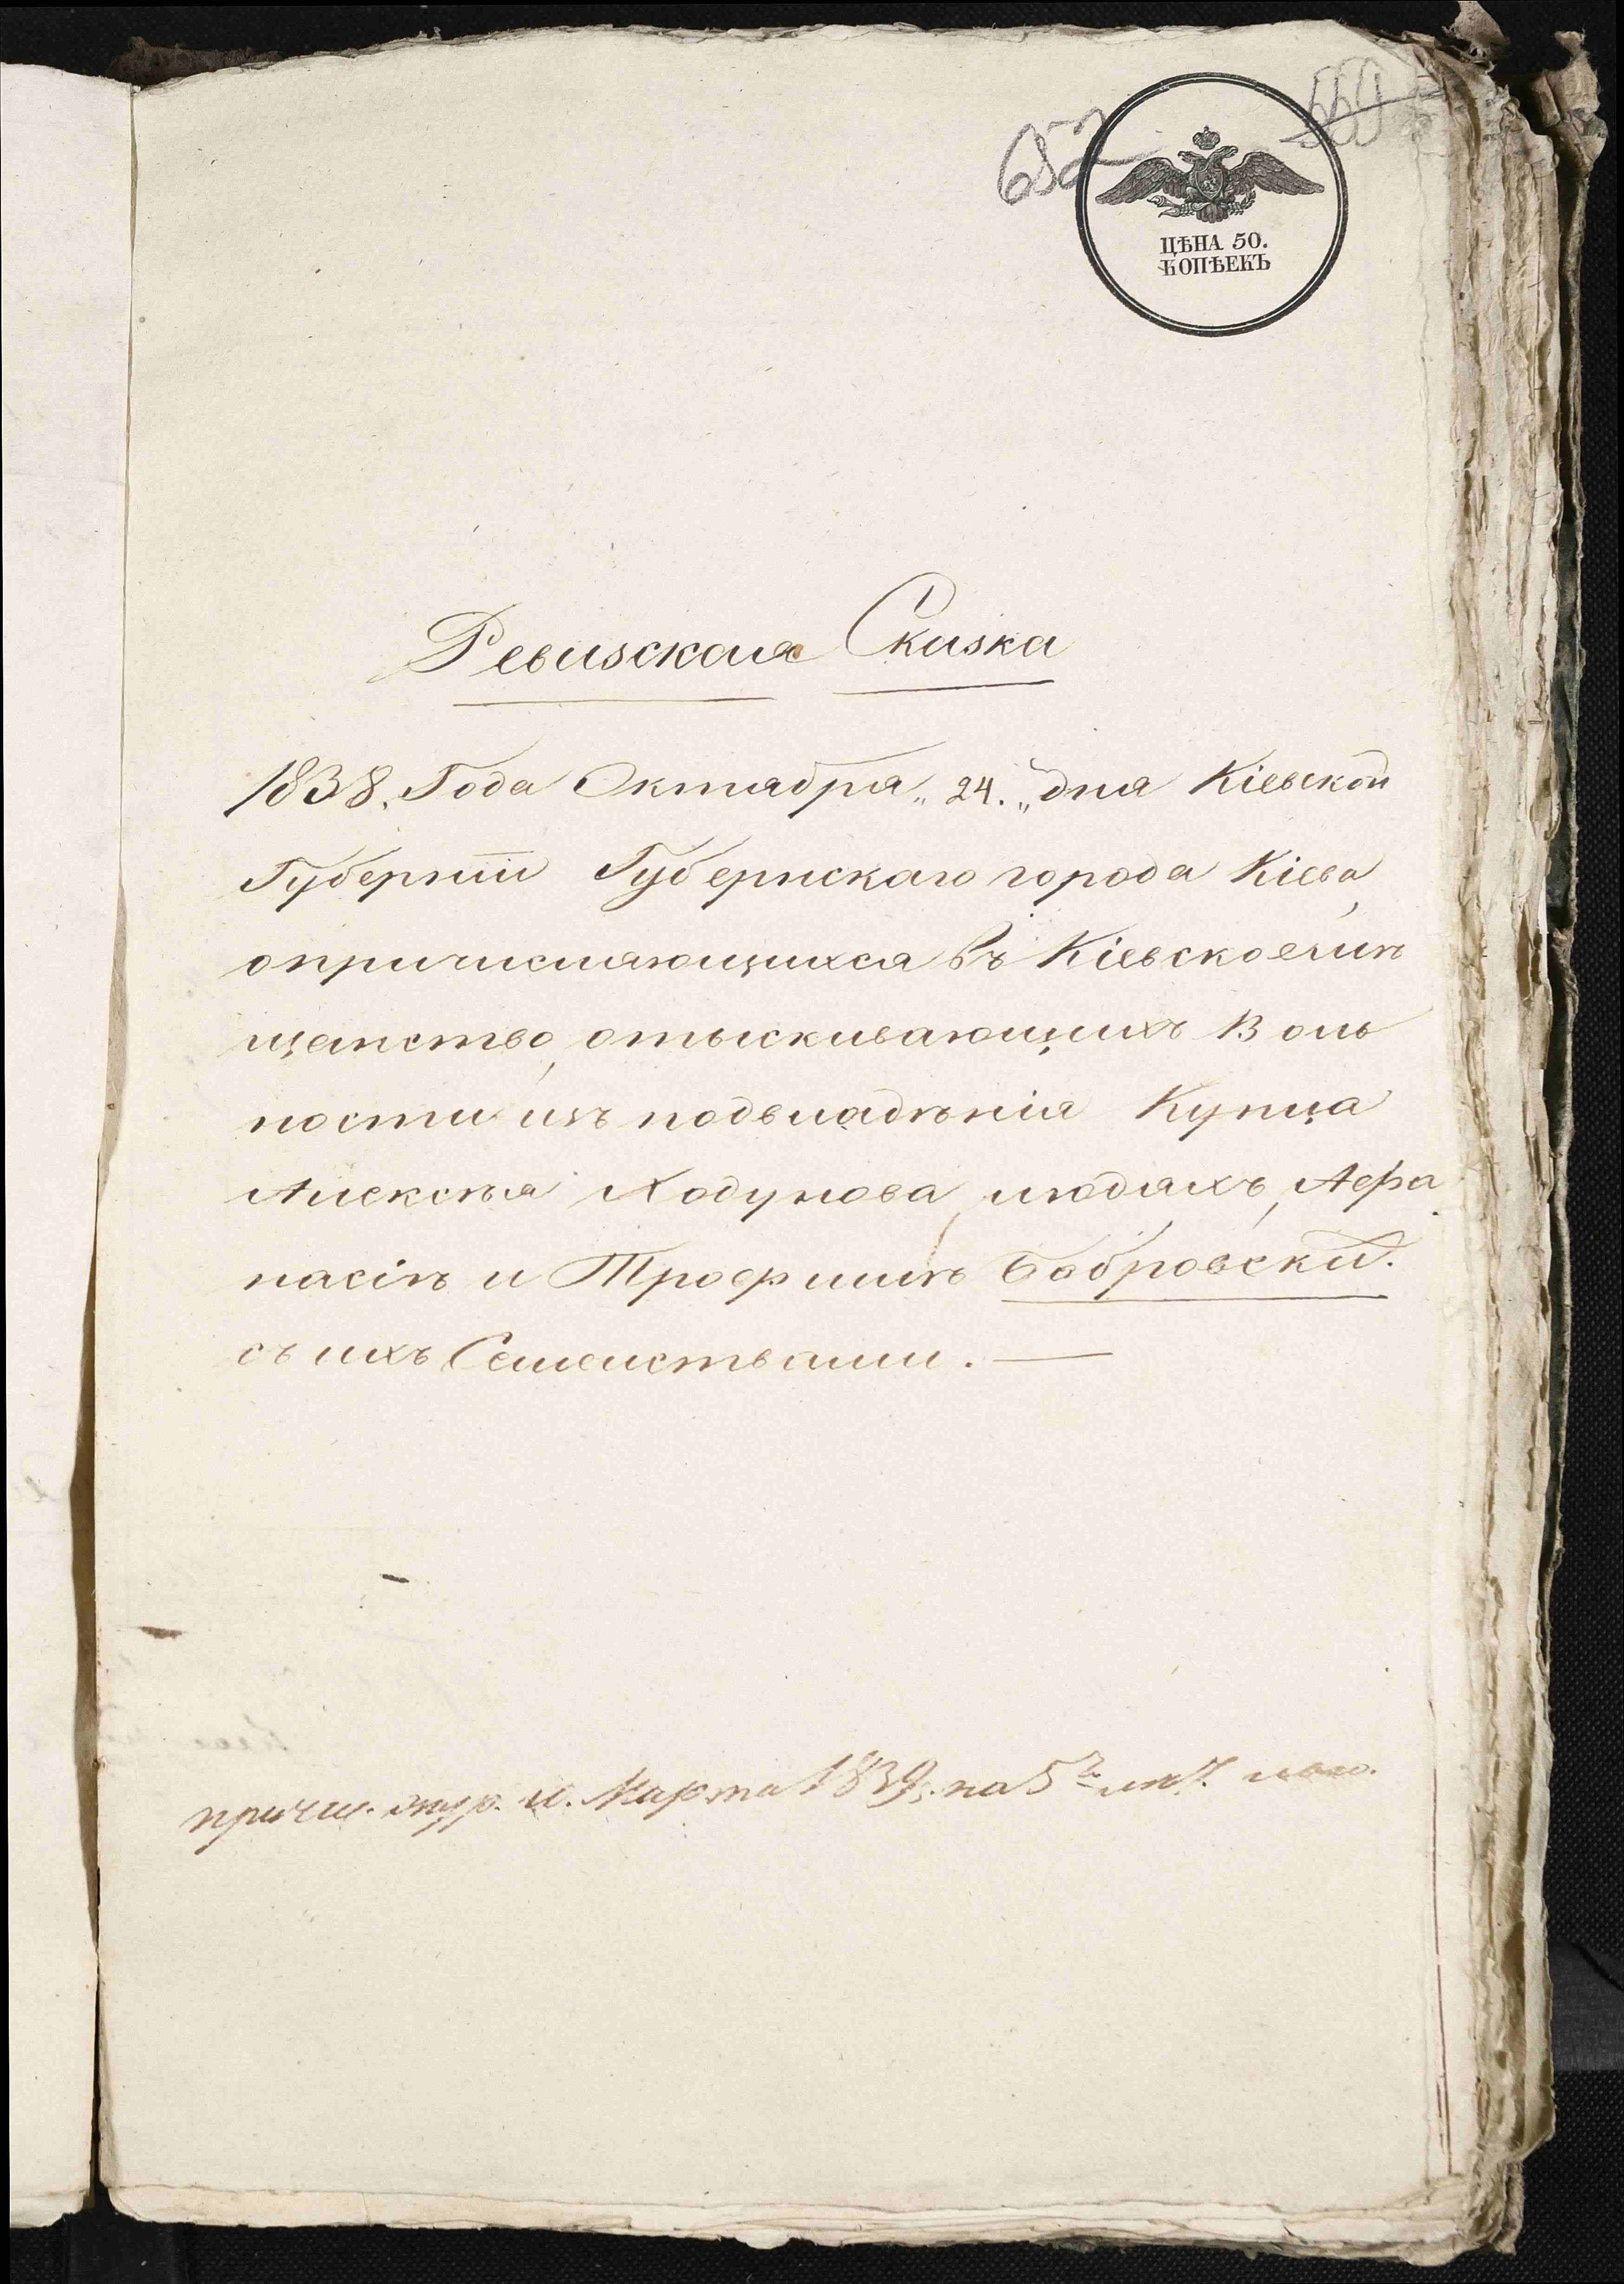 652
559
ЦѢНА 50.
КОПѢЕКЪ
Ревизская Сказка
1838. Года Октября „24.„ дня Кіевской
Губерніи Губернскаго города Кіева,
опричисляющихся въ Кіевскоемѣ
щанство, отыскивающихъ Воль
ности изъ подвладѣнія Купца
Алексѣя Ходунова, людяхъ, Афа
насіѣ и Трофимѣ Бобровски.
съ ихъ Семействами. —
причи. жур. Марта 1839. на 5